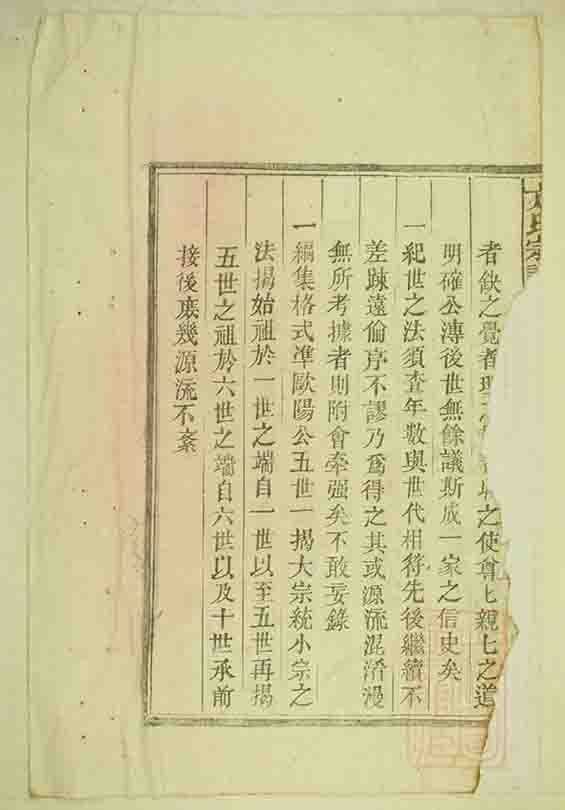 氏宗譜
者飲之覺者 之使尊匕親匕之道
明確公溥後世無餘議斯成一家之信史矣
一紀世之法須査年數與世代相符先後繼續不
差踈遠倫序不謬乃爲得之其或源流混淆漫
無所考據者則附會牽强矣不敢妄錄
一編集格式準歐陽公五世一揭大宗統小宗之
法揭始祖於一世之端自一世以至五世再揭
五世之祖於六世之端自六世以及十世承前
接後庶幾源流不紊